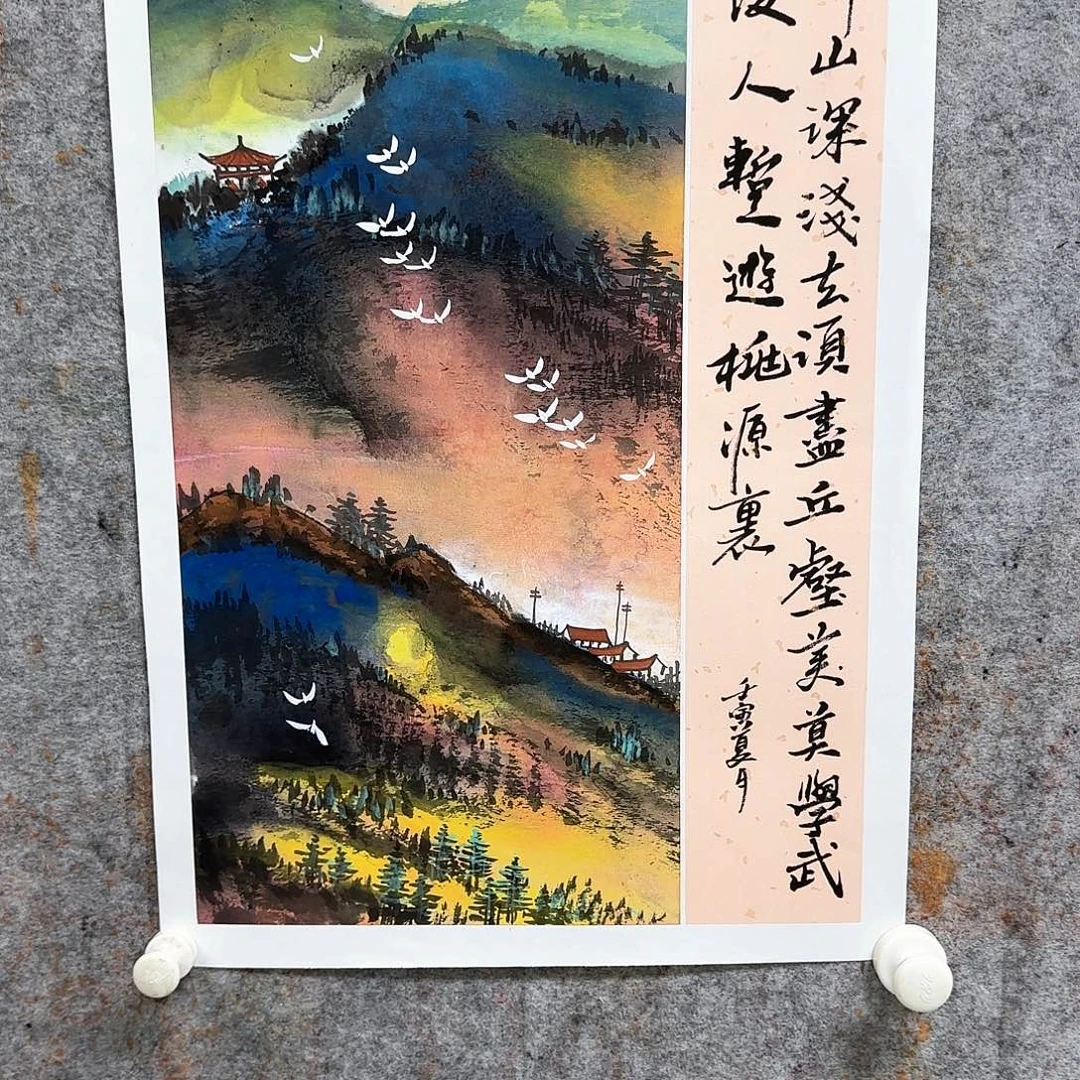 山深淺去須盡丘壑美莫學武
人暫遊桃源裏
壬寅夏月